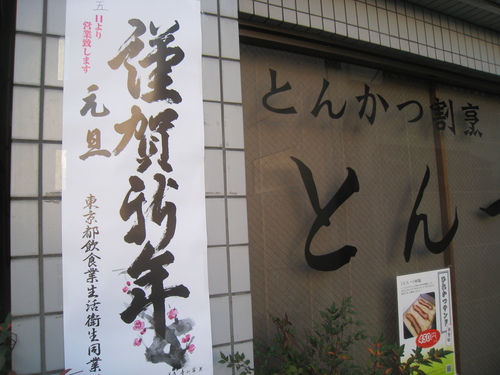 五日より
営業致します
謹賀新年
元旦
東京都飲食業生活衛生同業
とんかつ割烹
とん
450円